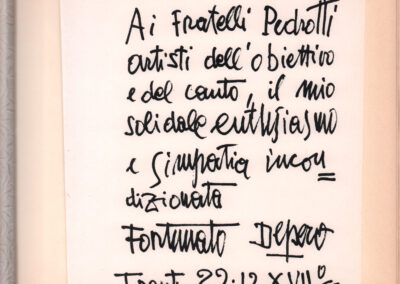 Ai Fratelli Pedrotti
artisti dell'obiettivo
e del canto, il mio
solidale enthusiasmo
e simpatia incon=
dizionata
Fortunato Depero
22.12 XVII°